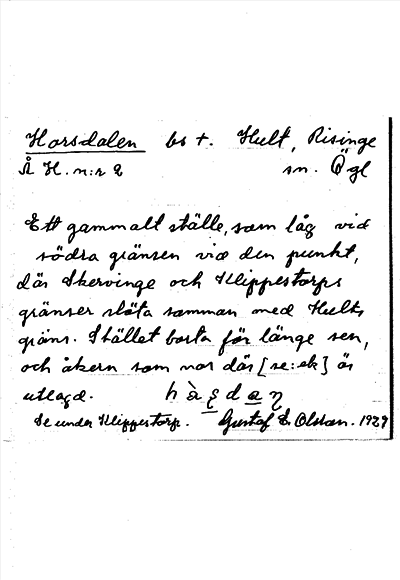 Horsdalen bs t. Hult, Risinge
Å H. n:r 2 sn. Ögl
Ett gammalt ställe, som låg vid
södra gränsen vid den punkt,
där Skervinge och Klippestorps
gränser stöta samman med Hults
gräns. Stället borta för länge sen,
och åkern som var där [se: ek] är
utlagd. hàʂdaɳ
Se under Klippestorp. Gustaf E. Olsson. 1929